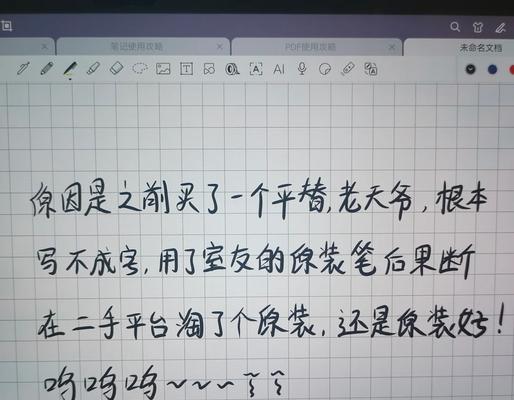 笔记使用攻略 PDF使用攻略 未命名文档
AI
原因是之前买了一个平替,老天爷,根本
写不成字,用了室友的原装笔后果断
在二手平台淘了个原装,还是原装好!
呜呜呜~~~